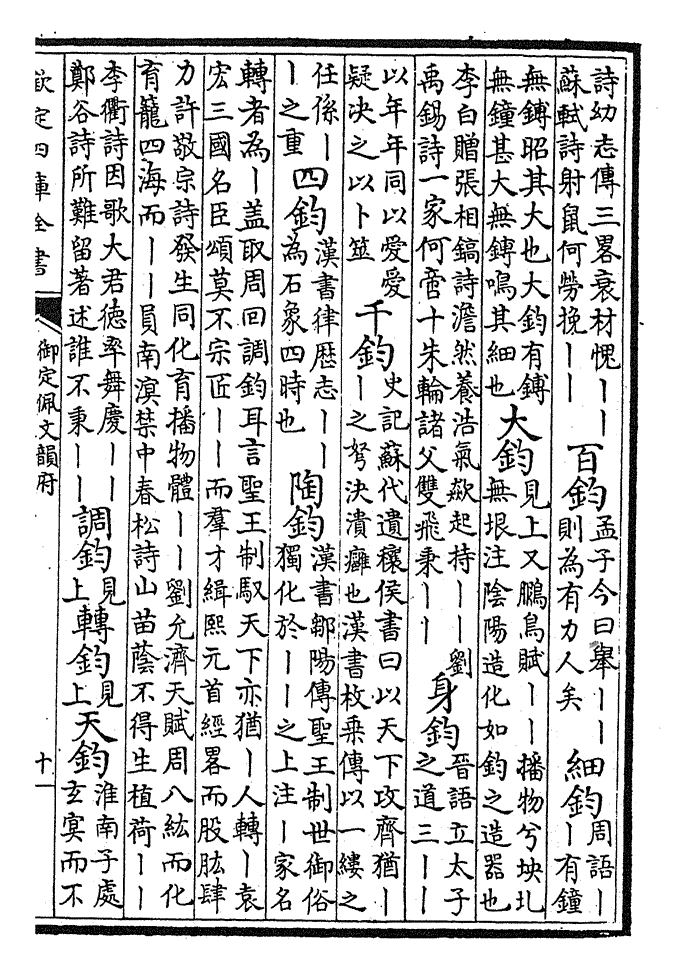 詩幼志傳三畧衰材愧丨丨
蘇軾詩射鼠何勞挽丨丨
百鈞
孟子今曰舉丨丨
則為有力人矣
細鈞
周語丨
丨有鐘
無鎛昭其大也大鈞有鎛
無鐘甚大無鎛鳴其細也
大鈞
見上又鵬鳥賦丨丨播物兮坱圠
無垠注陰陽造化如鈞之造器也
李白贈張相鎬詩澹然養浩氣欻起持丨丨劉
禹錫詩一家何啻十朱輪諸父雙飛秉丨丨
身鈞
晉語立太子
之道三丨丨
以年年同以愛愛
疑决之以卜筮
千鈞
史記蘇代遺穰侯書曰以天下攻齊猶丨
丨之弩决潰癰也漢書枚乘傳以一縷之
任係丨
丨之重
四鈞
漢書律歷志丨丨
為石象四時也
陶鈞
漢書鄒陽傳聖王制世御俗
獨化於丨丨之上注丨家名
轉者為丨盖取周回調鈞耳言聖王制馭天下亦猶丨人轉丨袁
宏三國名臣頌莫不宗匠丨丨而羣才緝熙元首經畧而股肱肆
力許敬宗詩發生同化育播物體丨丨劉允濟天賦周八紘而化
有籠四海而丨丨員南溟禁中春松詩山苗蔭不得生植荷丨丨
李衢詩因歌大君德率舞慶丨丨
鄭谷詩所難留著述誰不秉丨丨
調鈞
見
上
轉鈞
見
上
天鈞
淮南子處
玄冥而不
欽定四庫全書
御定佩文韻府
十一